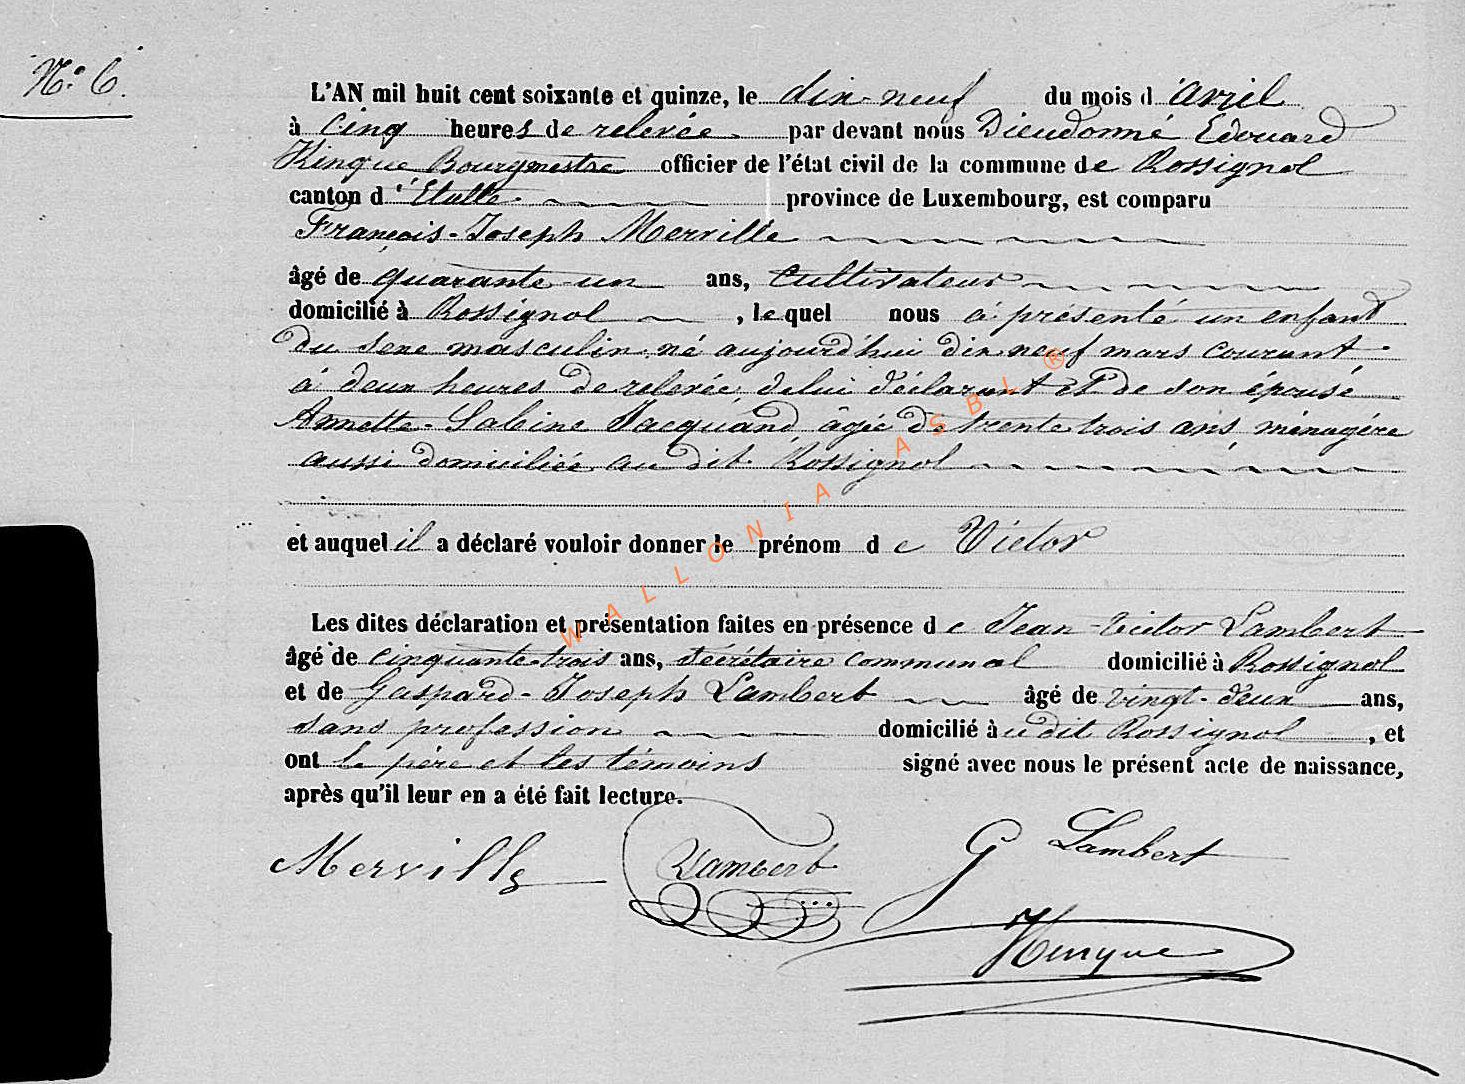 N.° 6.
L'AN mil huit cent soixante et quinze, le dix-neuf du mois d'avril
à cinq heures de relevée par devant nous Dieudonné Edouard
Hinque Bourgmestre officier de l'état civil de la commune de Rossignol
canton d'Etalle province de Luxembourg, est comparu
François-Joseph Merville
âgé de quarante-un ans, cultivateur
domicilié à Rossignol, lequel nous a présenté un enfant
du sexe masculin, né aujourd'hui dix neuf mars courant
à deux heures de relevée, de lui déclarant et de son épouse
Annette-Sabine Jacquand, âgée de trente trois ans, ménagère
aussi domiciliée au dit Rossignol
et auquel il a déclaré vouloir donner le prénom de Victor
Les dites déclaration et présentation faites en présence de Jean-Victor Lambert
âgé de cinquante-trois ans, secrétaire communal domicilié à Rossignol
et de Gaspard-Joseph Lambert âgé de vingt-deux ans,
sans profession domicilié au dit Rossignol, et
ont le père et les témoins signé avec nous le présent acte de naissance,
après qu'il leur en a été fait lecture.
Merville Lambert G Lambert
Hinque
WALLONIA ASBL ®